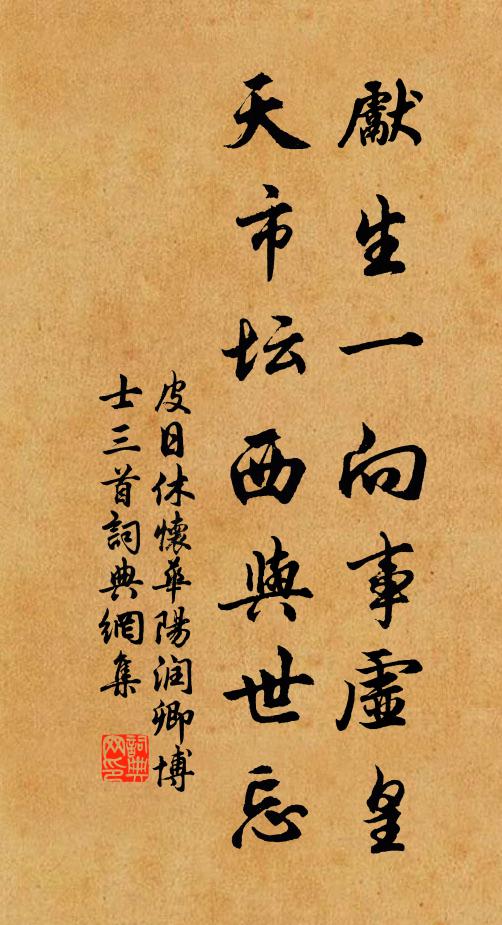 獻生一向事虛皇
天市坛西與世忘
皮日休懷華陽润卿博
士三首詞典網集
詞典
网印